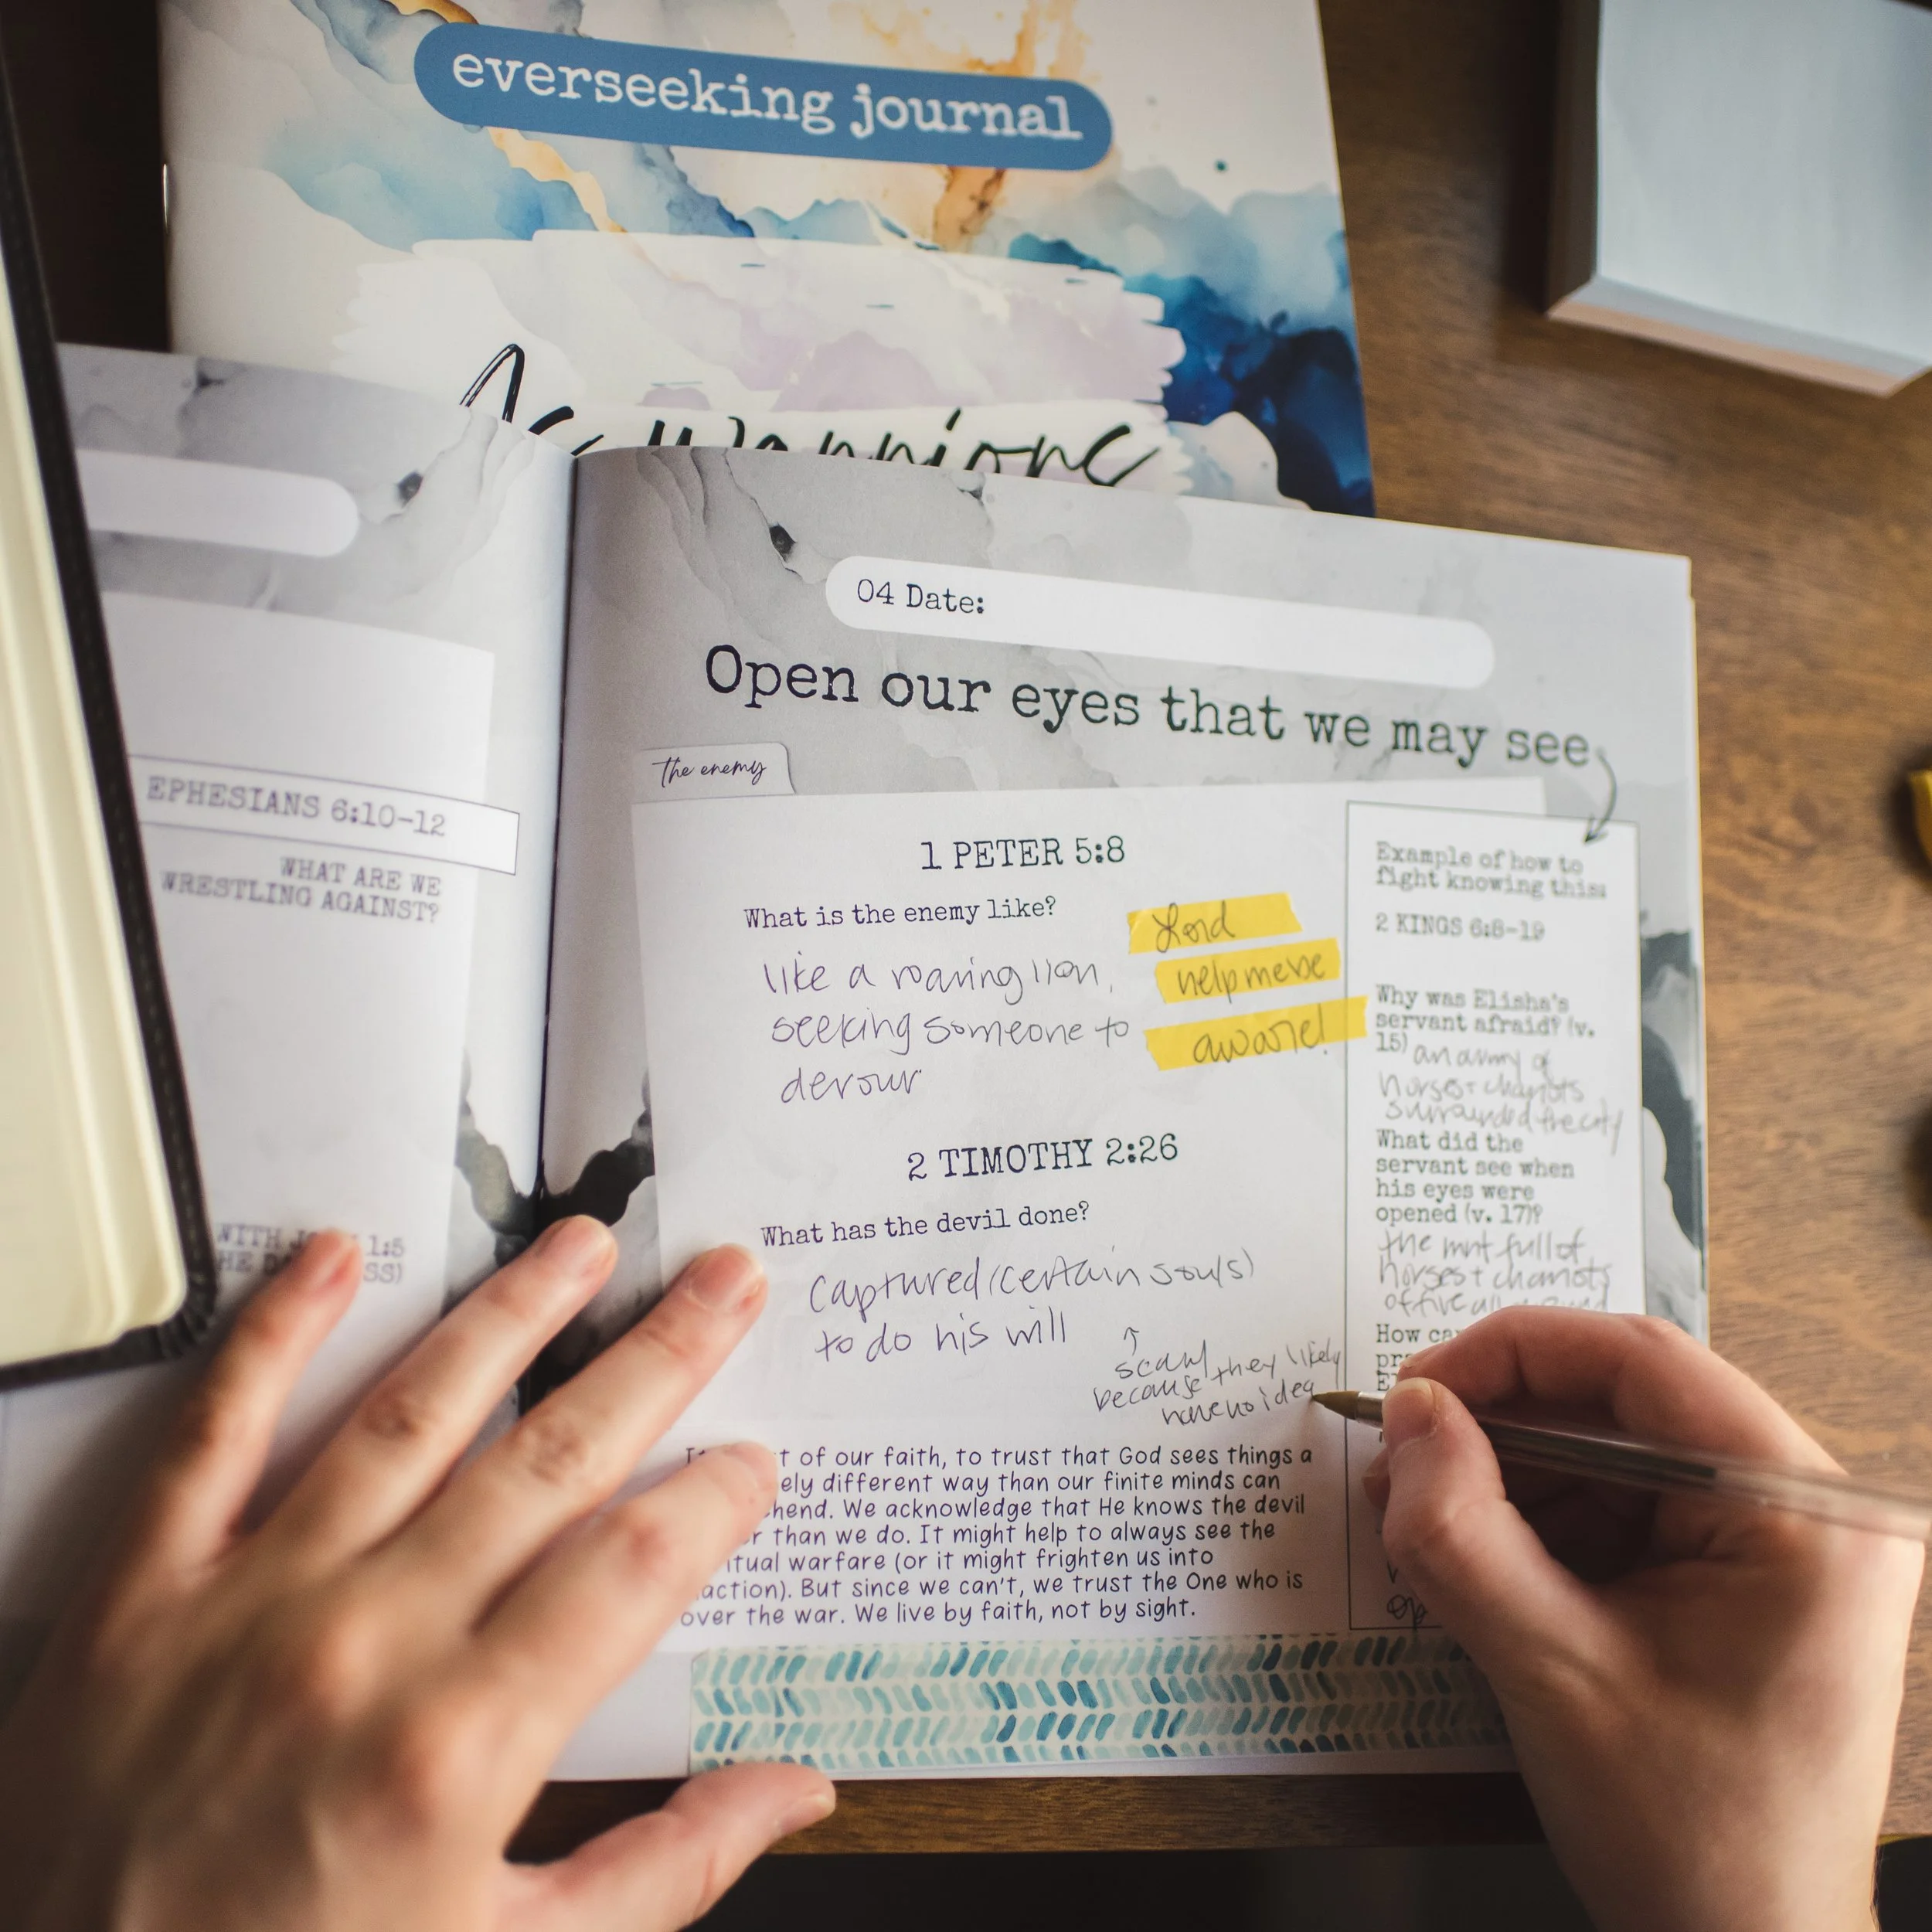 everseeking journal
EPHESIANS 6:10-12
WHAT ARE WE
WRESTLING AGAINST?
WITH 1:5
04 Date:
Open our eyes that we may see
The enemy
1 PETER 5:8
What is the enemy like?
like a roaring lion,
seeking someone to
devour
Lord
help me be
aware!
2 TIMOTHY 2:26
What has the devil done?
captured (certain souls)
to do his will
↑
scary
because they likely
have no idea
of our faith, to trust that God sees things a
different way than our finite minds can
We acknowledge that He knows the devil
than we do. It might help to always see the
warfare (or it might frighten us into
But since we can't, we trust the One who is
over the war. We live by faith, not by sight.
Example of how to
fight knowing this:
2 KINGS 6:8-19
Why was Elisha's
servant afraid? (v.
15) an army of
horses + chariots
surrounded the city
What did the
servant see when
his eyes were
opened (v. 17)?
the mnt full of
horses + chariots
of fire all
How